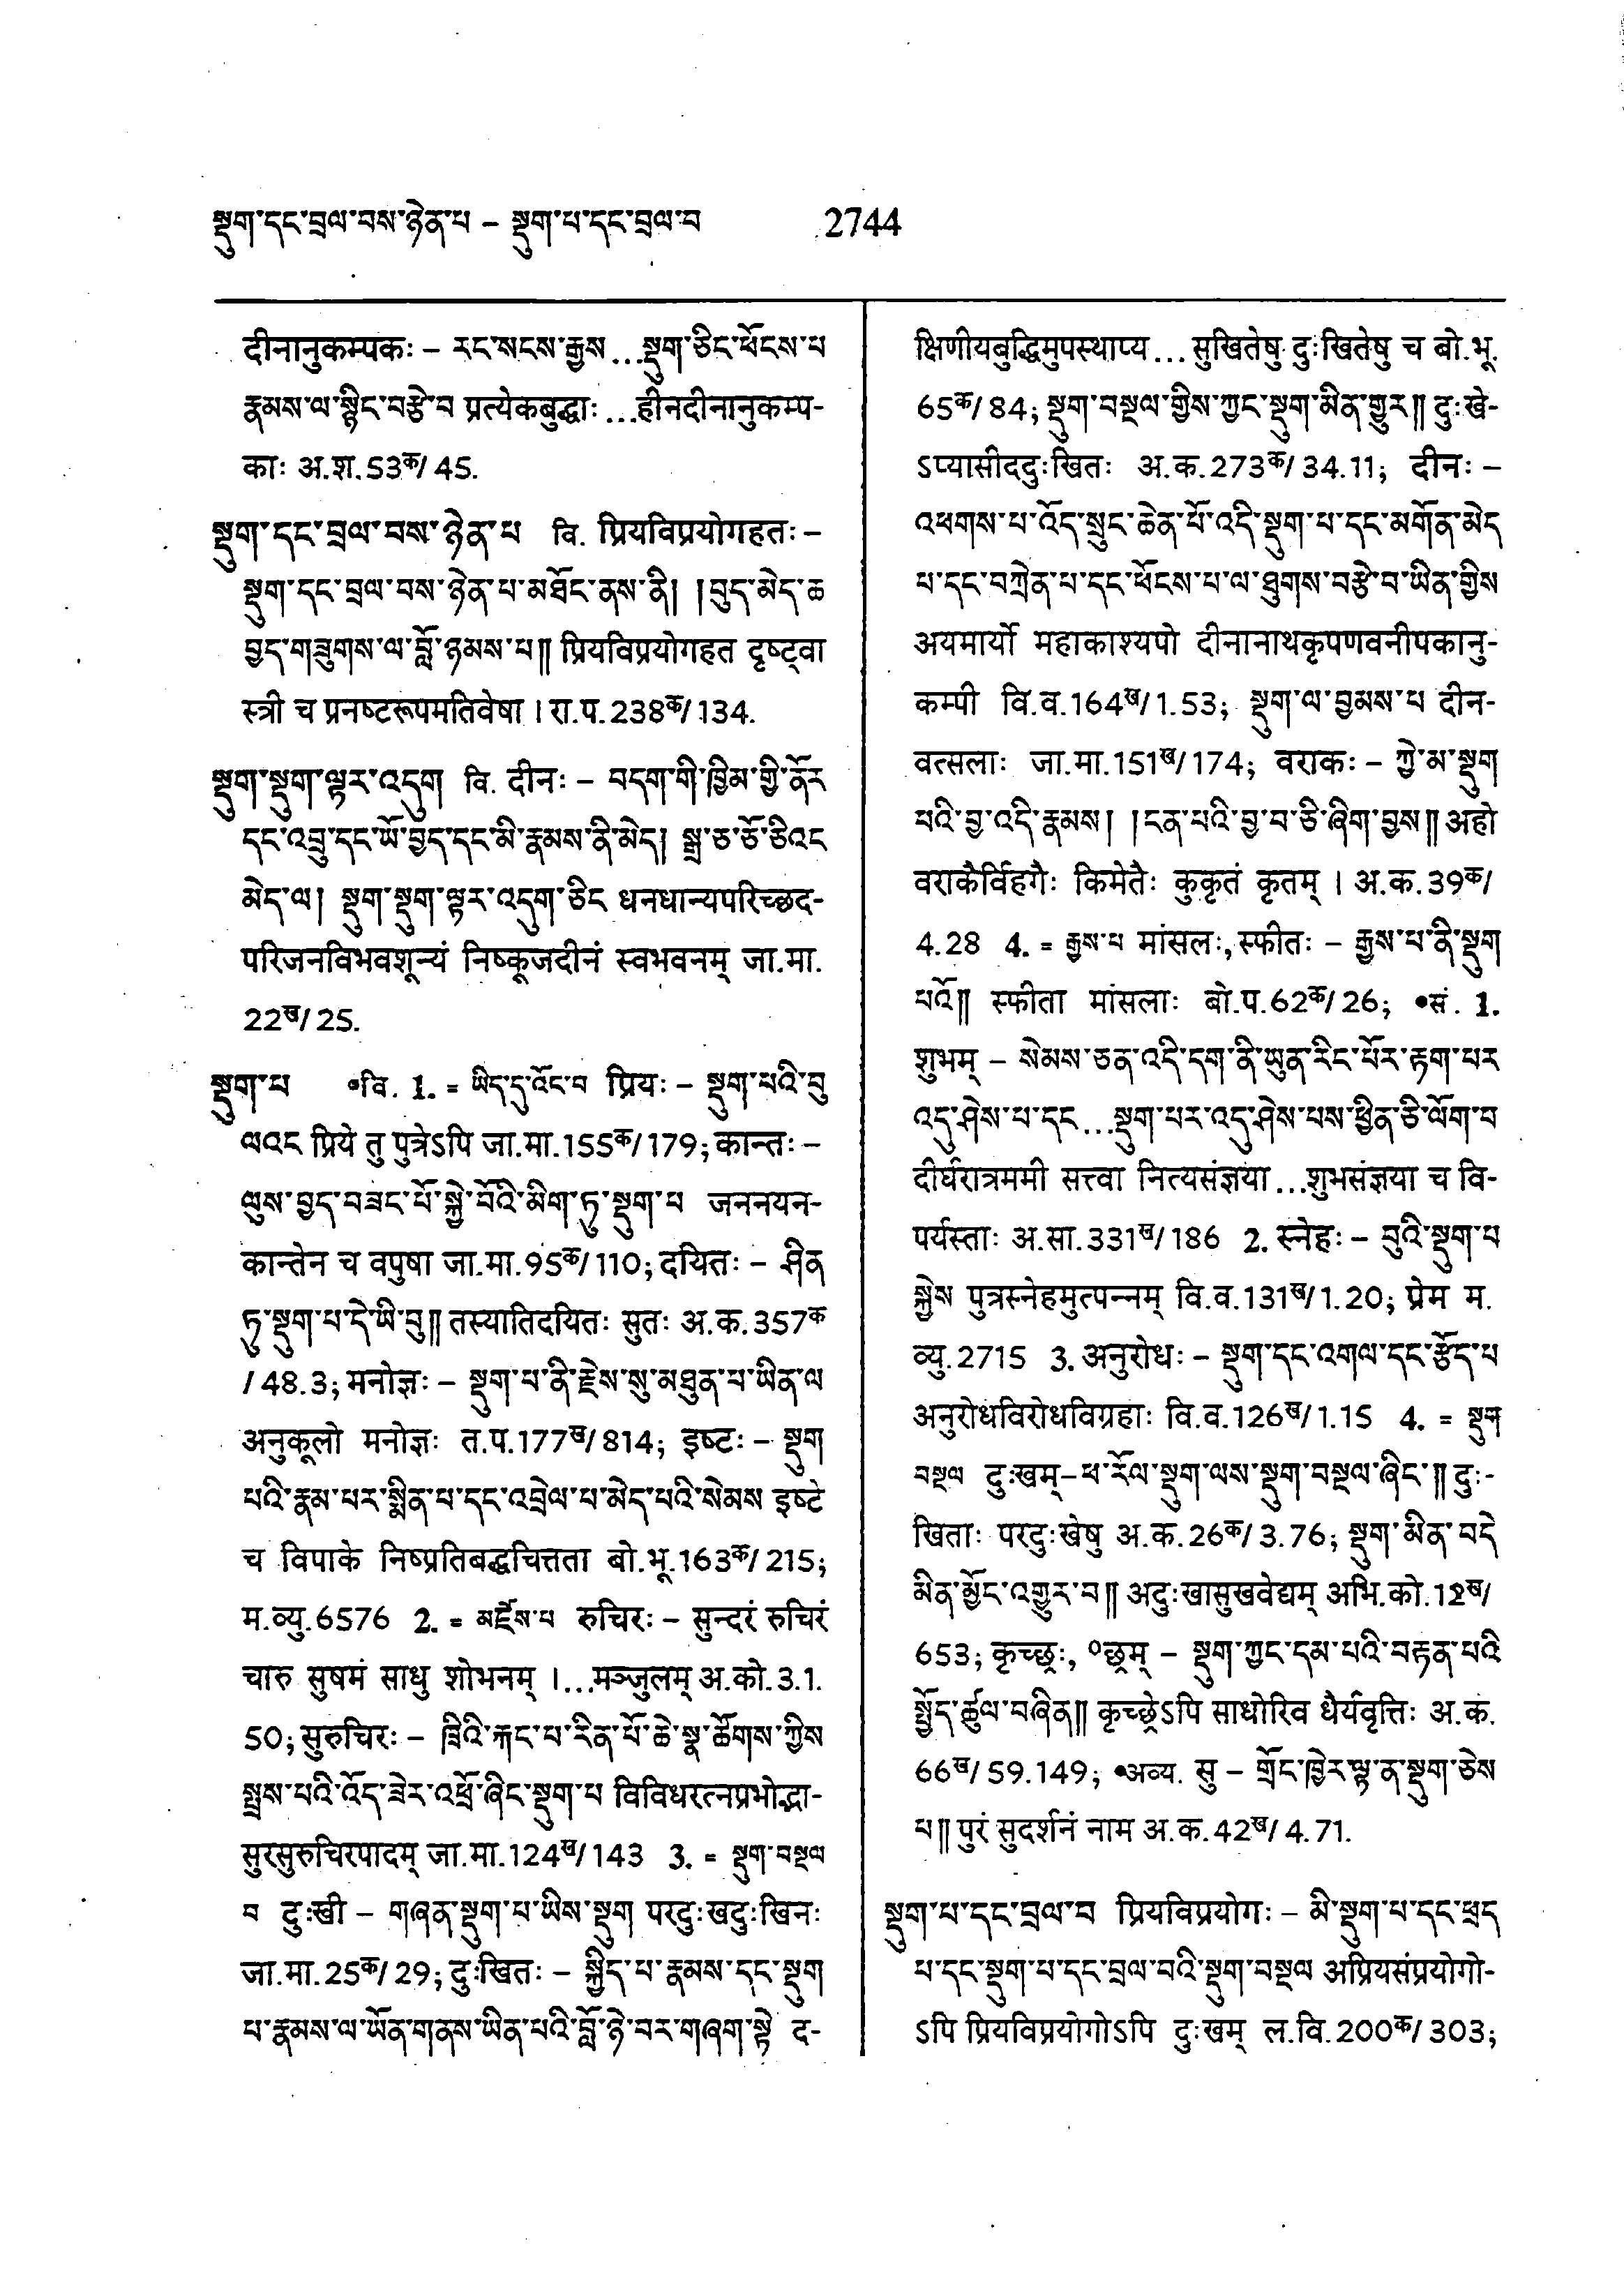 སྡུག་དང་བྲལ་བས་ཉེན་པ – སྡུག་པ་དང་བྲལ་བ 2744
दीनानुकम्पकः – རང་སངས་རྒྱས...སྡུག་ཅིང་ཕོངས་པ
རྣམས་ལ་སྙིང་བརྩེ་བ प्रत्येकबुद्धाः...हीनदीनानुकम्प-
काः अ.श.53क/45.
སྡུག་དང་བྲལ་བས་ཉེན་པ वि. प्रियविप्रयोगहतः –
སྡུག་དང་བྲལ་བས་ཉེན་པ་མཐོང་ནས་ནི། །བུད་མེད་ཆ
བྱད་གཟུགས་ལ་བློ་ཉམས་པ༎ प्रियविप्रयोगहत दृष्ट्वा
स्त्री च प्रनष्टरूपमतिवेषा । रा.प.238क/134.
སྡུག་སྡུག་ལྟར་འདུག वि. दीनः – བདག་གི་ཁྱིམ་གྱི་ནོར
དང་འབྲུ་དང་ཡོ་བྱད་དང་མི་རྣམས་ནི་མེད། སྒྲ་ཅ་ཅོ་ཅིའང
མེད་ལ། སྡུག་སྡུག་ལྟར་འདུག་ཅིང धनधान्यपरिच्छद-
परिजनविभवशून्यं निष्कूजदीनं स्वभवनम् जा.मा.
22ख/25.
སྡུག་པ •वि. 1. = ཡིད་དུ་འོང་བ प्रियः – སྡུག་པའི་བུ
ལའང प्रिये तु पुत्रेऽपि जा.मा.155क/179; कान्तः –
ལུས་བྱད་བཟང་པོ་སྐྱེ་བོའི་མིག་ཏུ་སྡུག་པ जननयन-
कान्तेन च वपुषा जा.मा.95क/110; दयितः – ཤིན
ཏུ་སྡུག་པ་དེ་ཡི་བུ༎ तस्यातिदयितः सुतः अ.क.357क
/48.3; मनोज्ञः – སྡུག་པ་ནི་རྗེས་སུ་མཐུན་པ་ཡིན་ལ
अनुकूलो मनोज्ञः त.प.177ख/814; इष्टः – སྡུག
པའི་རྣམ་པར་སྨིན་པ་དང་འབྲེལ་པ་མེད་པའི་སེམས इष्टे
च विपाके निष्प्रतिबद्धचित्तता बो.भू.163क/215;
म.व्यु.6576 2. = མཛེས་པ रुचिरः – सुन्दरं रुचिरं
चारु सुषमं साधु शोभनम् ।...मञ्जुलम् अ.को.3.1.
50; सुरुचिरः – ཁྲིའི་རྐང་པ་རིན་པོ་ཆེ་སྣ་ཚོགས་ཀྱིས
སྤྲས་པའི་འོད་ཟེར་འཕྲོ་ཞིང་སྡུག་པ विविधरत्नप्रभोद्भा-
सुरसुरुचिरपादम् जा.मा.124ख/143 3. = སྡུག་བསྔལ
བ दुःखी – གཞན་སྡུག་པ་ཡིས་སྡུག परदुःखदुःखिनः
जा.मा.25क/29; दुःखितः – སྐྱིད་པ་རྣམས་དང་སྡུག
པ་རྣམས་ལ་ཡོན་གནས་ཡིན་པའི་བློ་ཉེ་བར་གཞག་སྟེ द-
क्षिणीयबुद्धिमुपस्थाप्य...सुखितेषु दुःखितेषु च बो.भू.
65क/84; སྡུག་བསྔལ་གྱིས་ཀྱང་སྡུག་མིན་གྱུར༎ दुःखे-
ऽप्यासीददुःखितः अ.क.273क/34.11; दीनः –
འཕགས་པ་འོད་སྲུང་ཆེན་པོ་འདི་སྡུག་པ་དང་མགོན་མེད
པ་དང་བཀྲེན་པ་དང་ཕོངས་པ་ལ་ཐུགས་བརྩེ་བ་ཡིན་གྱིས
अयमार्यो महाकाश्यपो दीनानाथकृपणवनीपकानु-
कम्पी वि.व.164ख/1.53; སྡུག་ལ་བྱམས་པ दीन-
वत्सलाः जा.मा.151ख/174; वराकः – ཀྱེ་མ་སྡུག
པའི་བྱ་འདི་རྣམས། །ངན་པའི་བྱ་བ་ཅི་ཞིག་བྱས༎ अहो
वराकैर्विहगैः किमेतैः कुकृतं कृतम् । अ.क.39क/
4.28 4. = རྒྱས་པ मांसलः, स्फीतः – རྒྱས་པ་ནི་སྡུག
པའོ༎ स्फीता मांसलाः बो.प.62क/26; •सं. 1.
शुभम् – སེམས་ཅན་འདི་དག་ནི་ཡུན་རིང་པོར་རྟག་པར
འདུ་ཤེས་པ་དང...སྡུག་པར་འདུ་ཤེས་པས་ཕྱིན་ཅི་ལོག་བ
दीर्घरात्रममी सत्त्वा नित्यसंज्ञया...शुभसंज्ञया च वि-
पर्यस्ताः अ.सा.331ख/186 2. स्नेहः – བུའི་སྡུག་པ
སྐྱེས पुत्रस्नेहमुत्पन्नम् वि.व.131ख/1.20; प्रेम म.
व्यु.2715 3. अनुरोधः – སྡུག་དང་འགལ་དང་རྩོད་པ
अनुरोधविरोधविग्रहाः वि.व.126ख/1.15 4. = སྡུག
བསྔལ दुःखम्–ཕ་རོལ་སྡུག་ལས་སྡུག་བསྔལ་ཞིང་༎ दुः-
खिताः परदुःखेषु अ.क.26क/3.76; སྡུག་མིན་བདེ
མིན་མྱོང་འགྱུར་བ༎ अदुःखासुखवेद्यम् अभि.को.12ख/
653; कृच्छ्रः, ०छ्रम् – སྡུག་ཀྱང་དམ་པའི་བརྟན་པའི
སྤྱོད་ཚུལ་བཞིན༎ कृच्छ्रेऽपि साधोरिव धैर्यवृत्तिः अ.क.
66ख/59.149; •अव्य. सु – གྲོང་ཁྱེར་ལྟ་ན་སྡུག་ཅེས
པ༎ पुरं सुदर्शनं नाम अ.क.42ख/4.71.
སྡུག་པ་དང་བྲལ་བ प्रियविप्रयोगः – མི་སྡུག་པ་དང་ཕྲད
པ་དང་སྡུག་པ་དང་བྲལ་བའི་སྡུག་བསྔལ अप्रियसंप्रयोगो-
ऽपि प्रियविप्रयोगोऽपि दुःखम् ल.वि.200क/303;